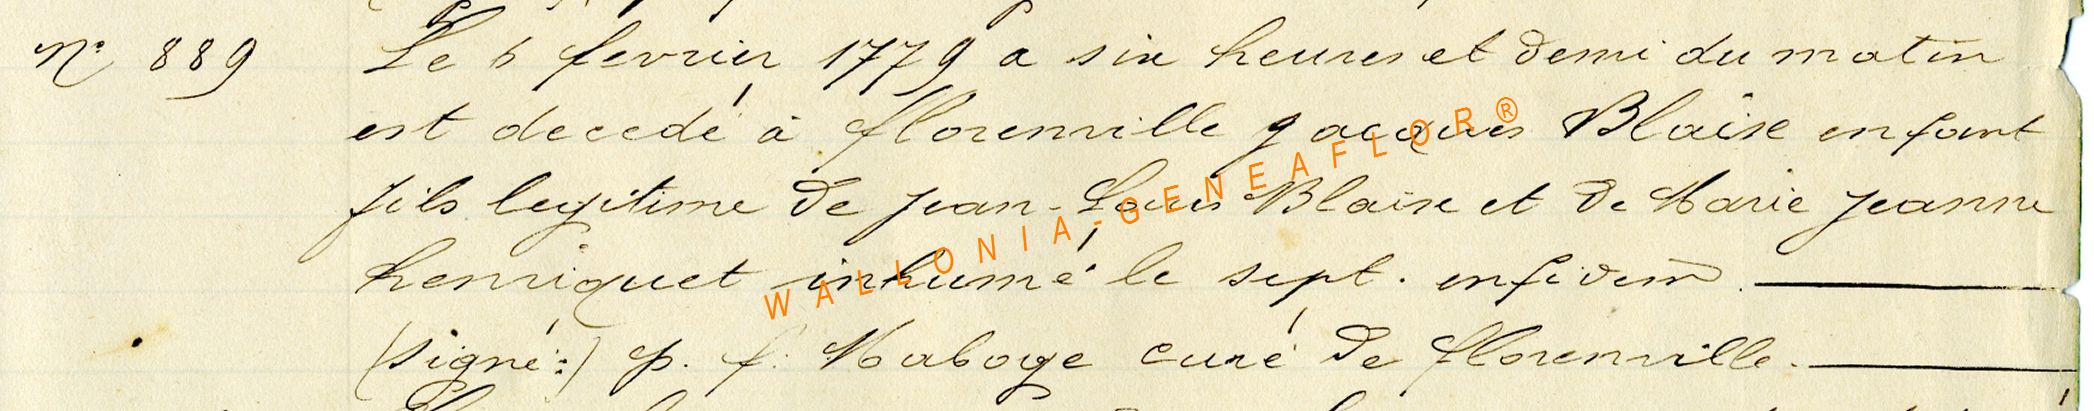 N° 889 Le 6 fevrier 1779 a six heures et demi du matin
est decedé à florenville jacques Blaise enfant
fils legitime de jean-Louis Blaise et de Marie jeanne
henriquet inhumé le sept. enfidem
(signé:) p. f. Maboge curé de florenville.
WALLONIA-GENEAFLOR®